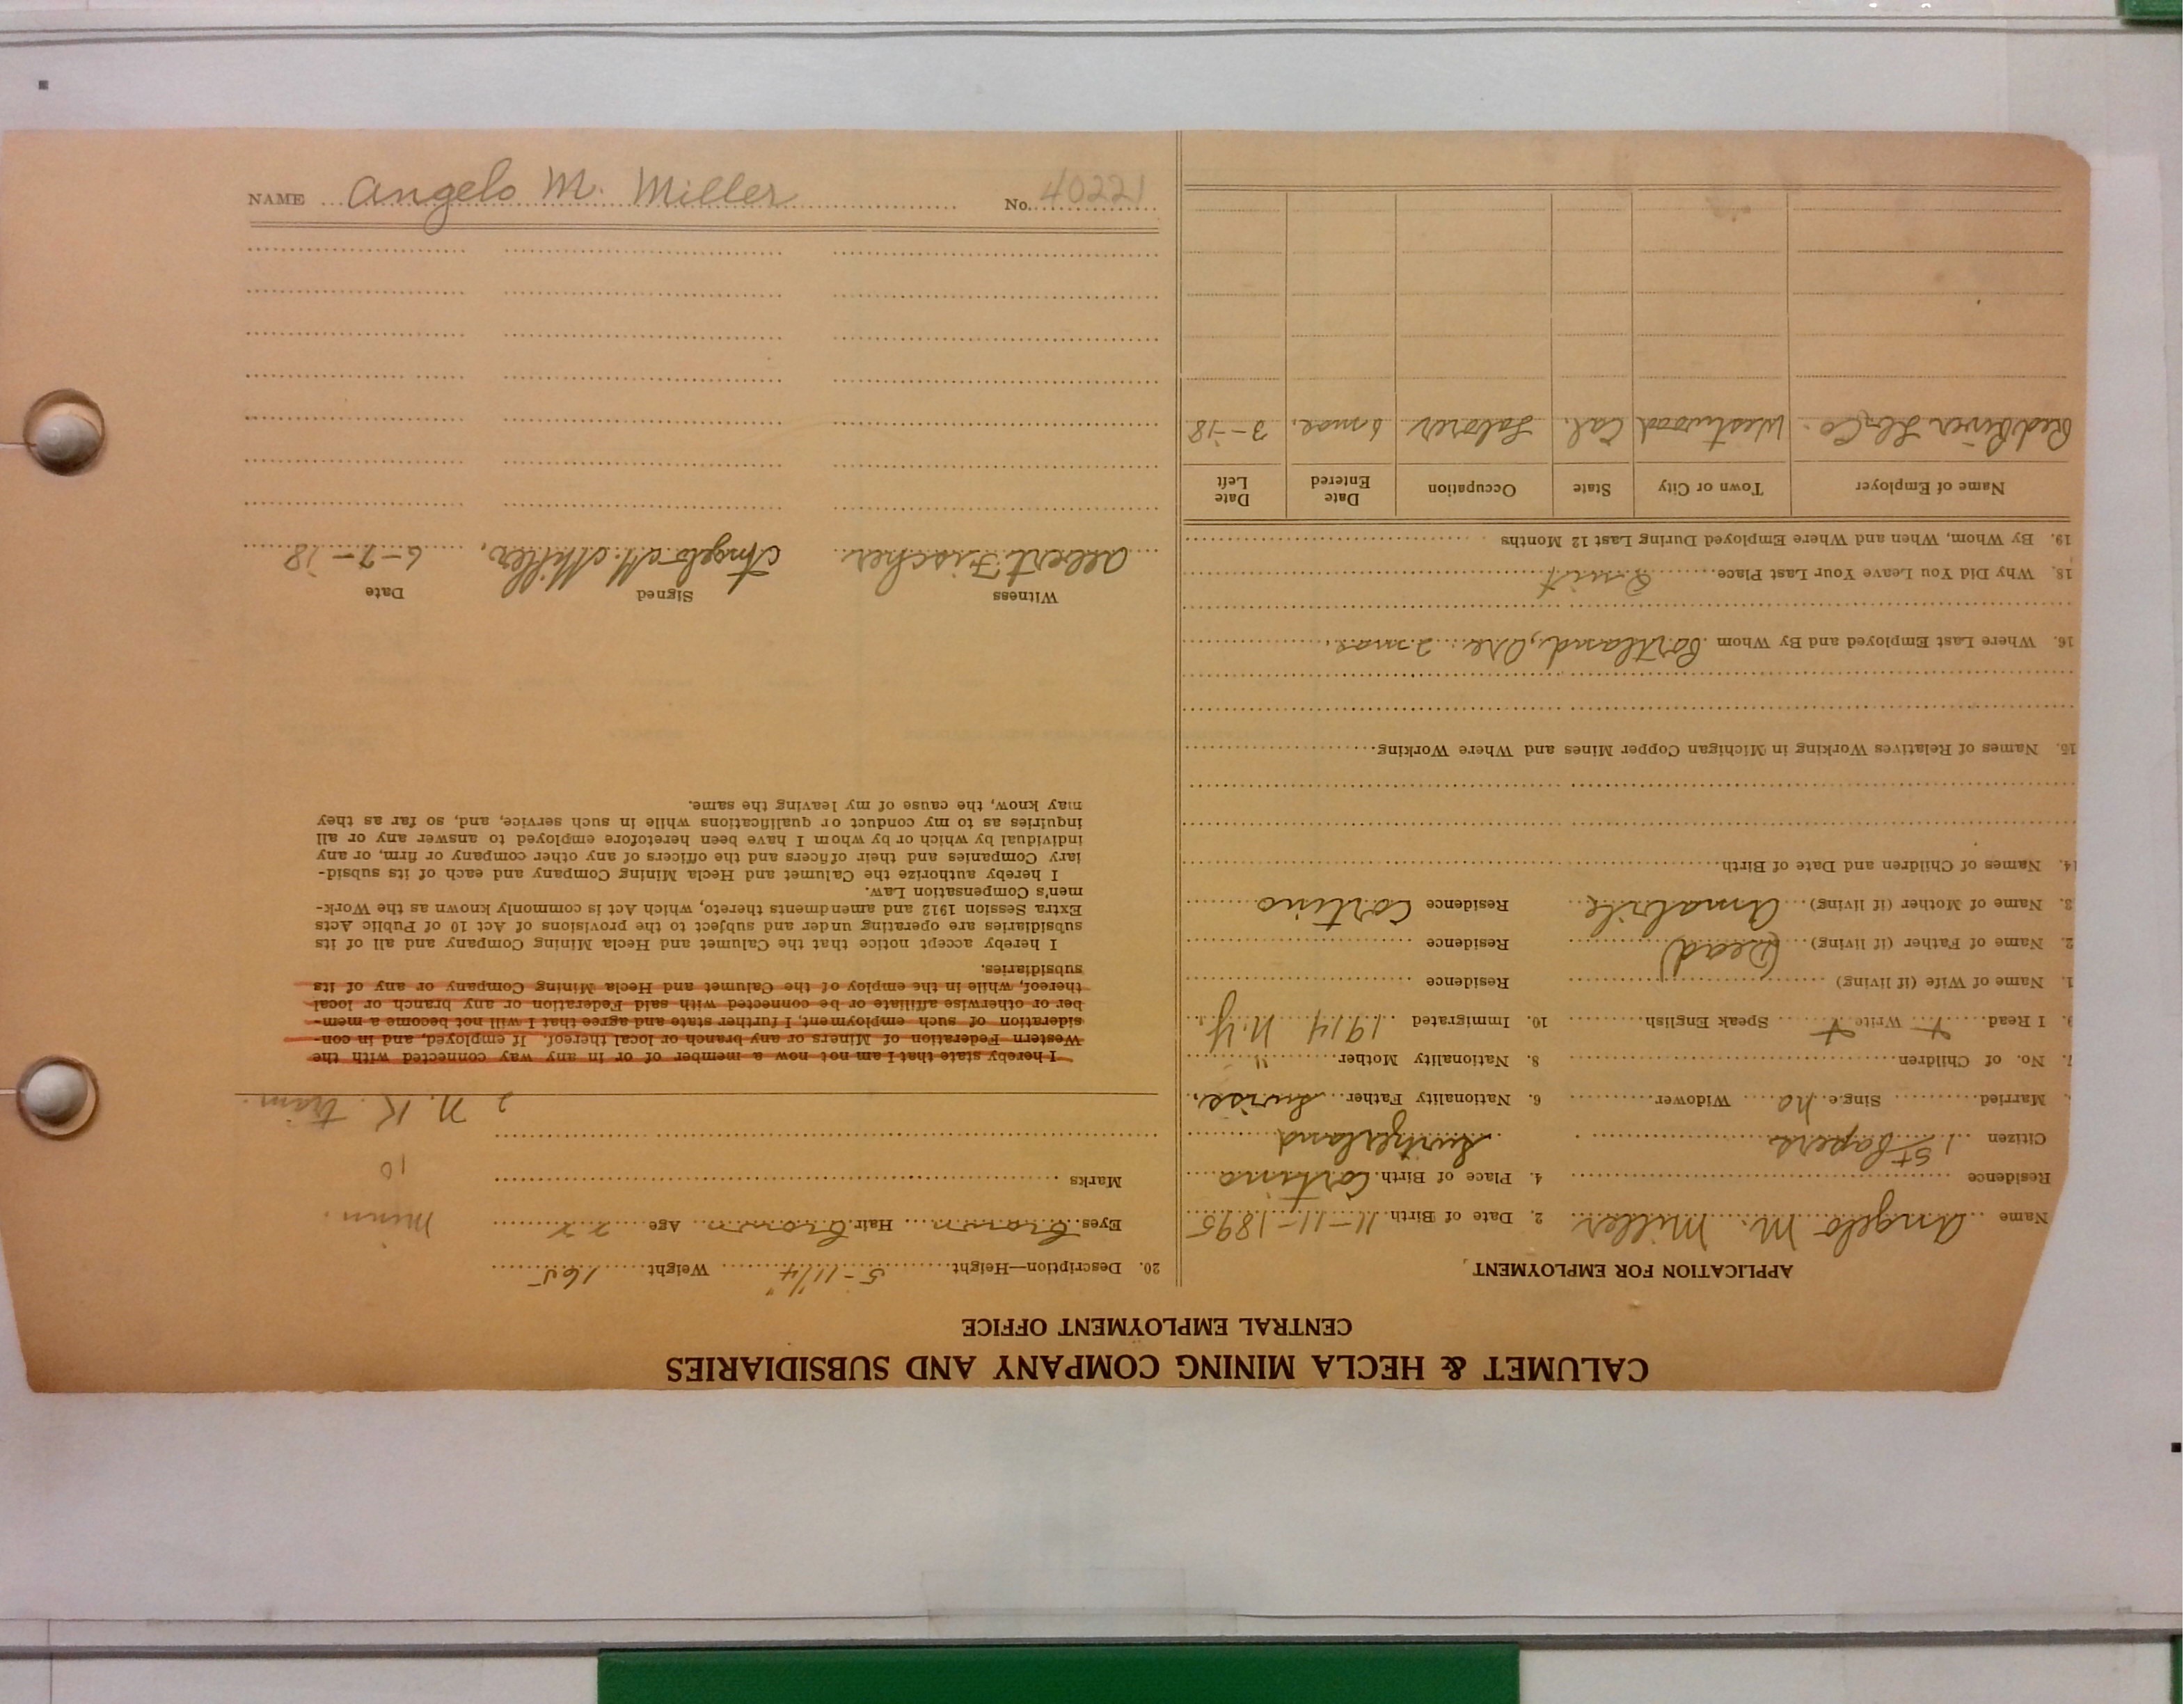 NAME Angelo M. Miller No. 40221
CALUMET & HECLA MINING COMPANY AND SUBSIDIARIES
CENTRAL EMPLOYMENT OFFICE
APPLICATION FOR EMPLOYMENT
Name Angelo M. Miller 2. Date of Birth 11-11-1895
Residence 4. Place of Birth Cortino
Citizen 1st Papers Switzerland
Married Single no Widower 6. Nationality Father Swiss.
7. No. of Children 8. Nationality Mother "
9. I Read + Write + Speak English 10. Immigrated 1914 N.Y.
1. Name of Wife (if living) Residence
2. Name of Father (if living) (Dead) Residence
3. Name of Mother (if living) Residence Cortino
14. Names of Children and Date of Birth
15. Names of Relatives Working in Michigan Copper Mines and Where Working.
16. Where Last Employed and By Whom Portland, Ore. 2 mos.
18. Why Did You Leave Your Last Place Quit
19. By Whom, When and Where Employed During Last 12 Months
Name of Employer Town or City State Occupation Date Entered Date Left
Red River Co. Westwood Cal. Laborer 6 mos. 3-'18
20. Description—Height 5-11¼" Weight 165
Eyes Brown Hair Brown Age 22 Minn.
Marks 10
2 N. K. tram.
I hereby state that I am not now a member of or in any way connected with the
Western Federation of Miners or any branch or local thereof. If employed, and in con-
sideration of such employment, I further state and agree that I will not become a mem-
ber or otherwise affiliate or be connected with said Federation or any branch or local
thereof, while in the employ of the Calumet and Hecla Mining Company or any of its
subsidiaries.
I hereby accept notice that the Calumet and Hecla Mining Company and all of its
subsidiaries are operating under and subject to the provisions of Act 10 of Public Acts
Extra Session 1912 and amendments thereto, which Act is commonly known as the Work-
men's Compensation Law.
I hereby authorize the Calumet and Hecla Mining Company and each of its subsid-
iary Companies and their officers and the officers of any other company or firm, or any
individual by which or by whom I have been heretofore employed to answer any or all
inquiries as to my conduct or qualifications while in such service, and, so far as they
may know, the cause of my leaving the same.
Witness Signed Date
Albert Fischer Angelo M. Miller. 6-7-'18